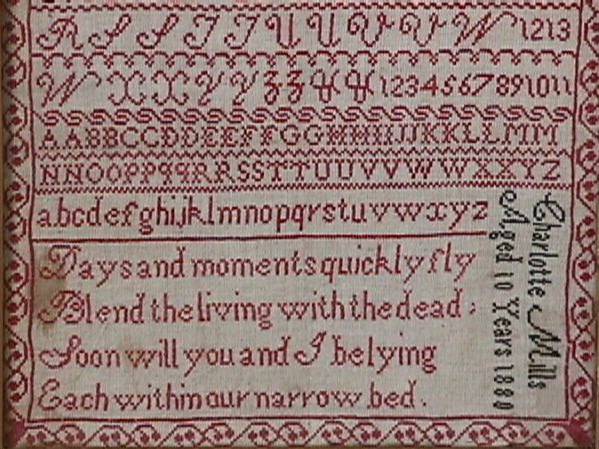 R S S T T U U V V W 1213
W X X Y Y Z Z & & 1234567891011
AABBCCDDEEFFGGHHIIJJKKLLMM
NNOOPPQQRRSSTTUUVVWWXXYZ
abcdefghijklmnopqrstuvwxyz
Days and moments quickly fly
Blend the living with the dead;
Soon will you and I be lying
Each within our narrow bed.
Charlotte Mills
Aged 10 Years 1880